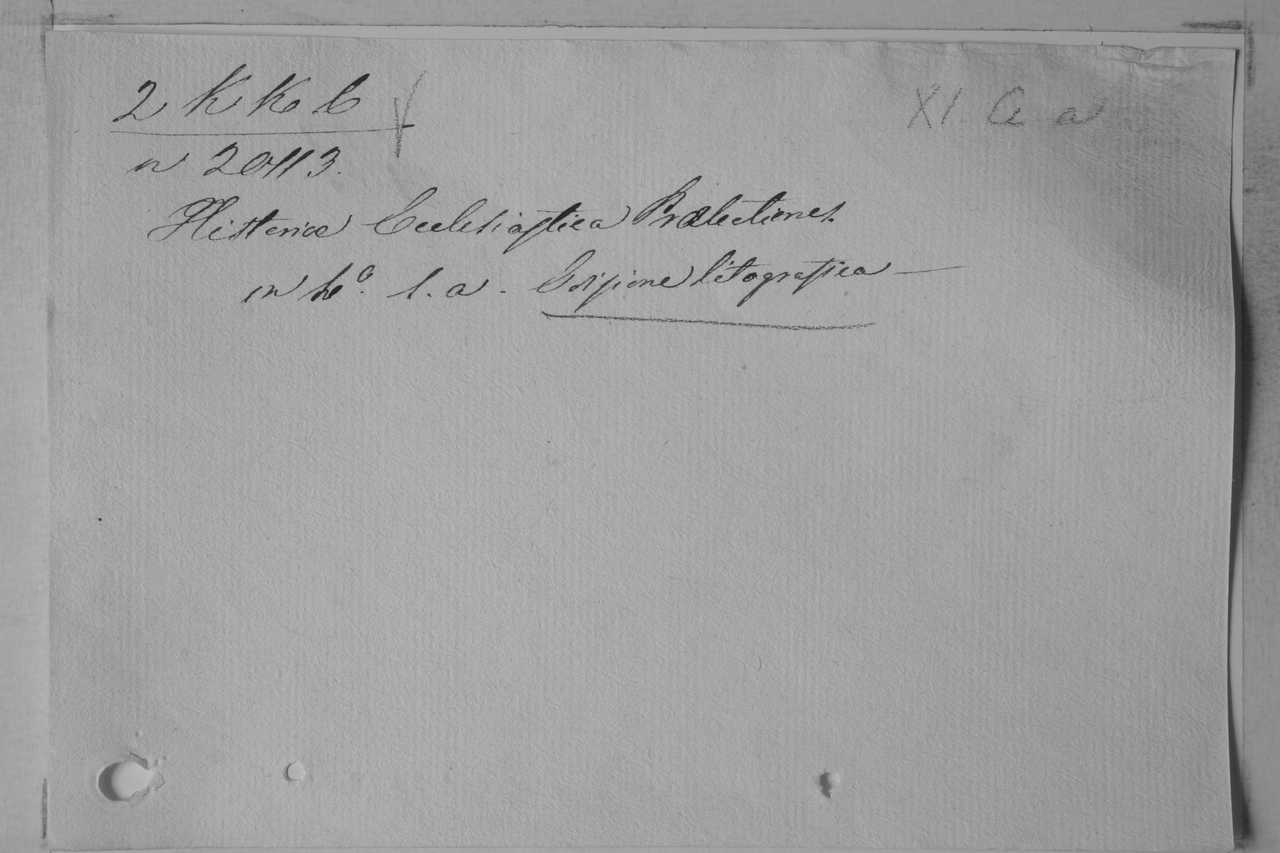 2 K K C XI. A a
n 20113.
Historiæ Ecclesiastica Prælectiones.
in 4º. s. a. Edizione litografica —